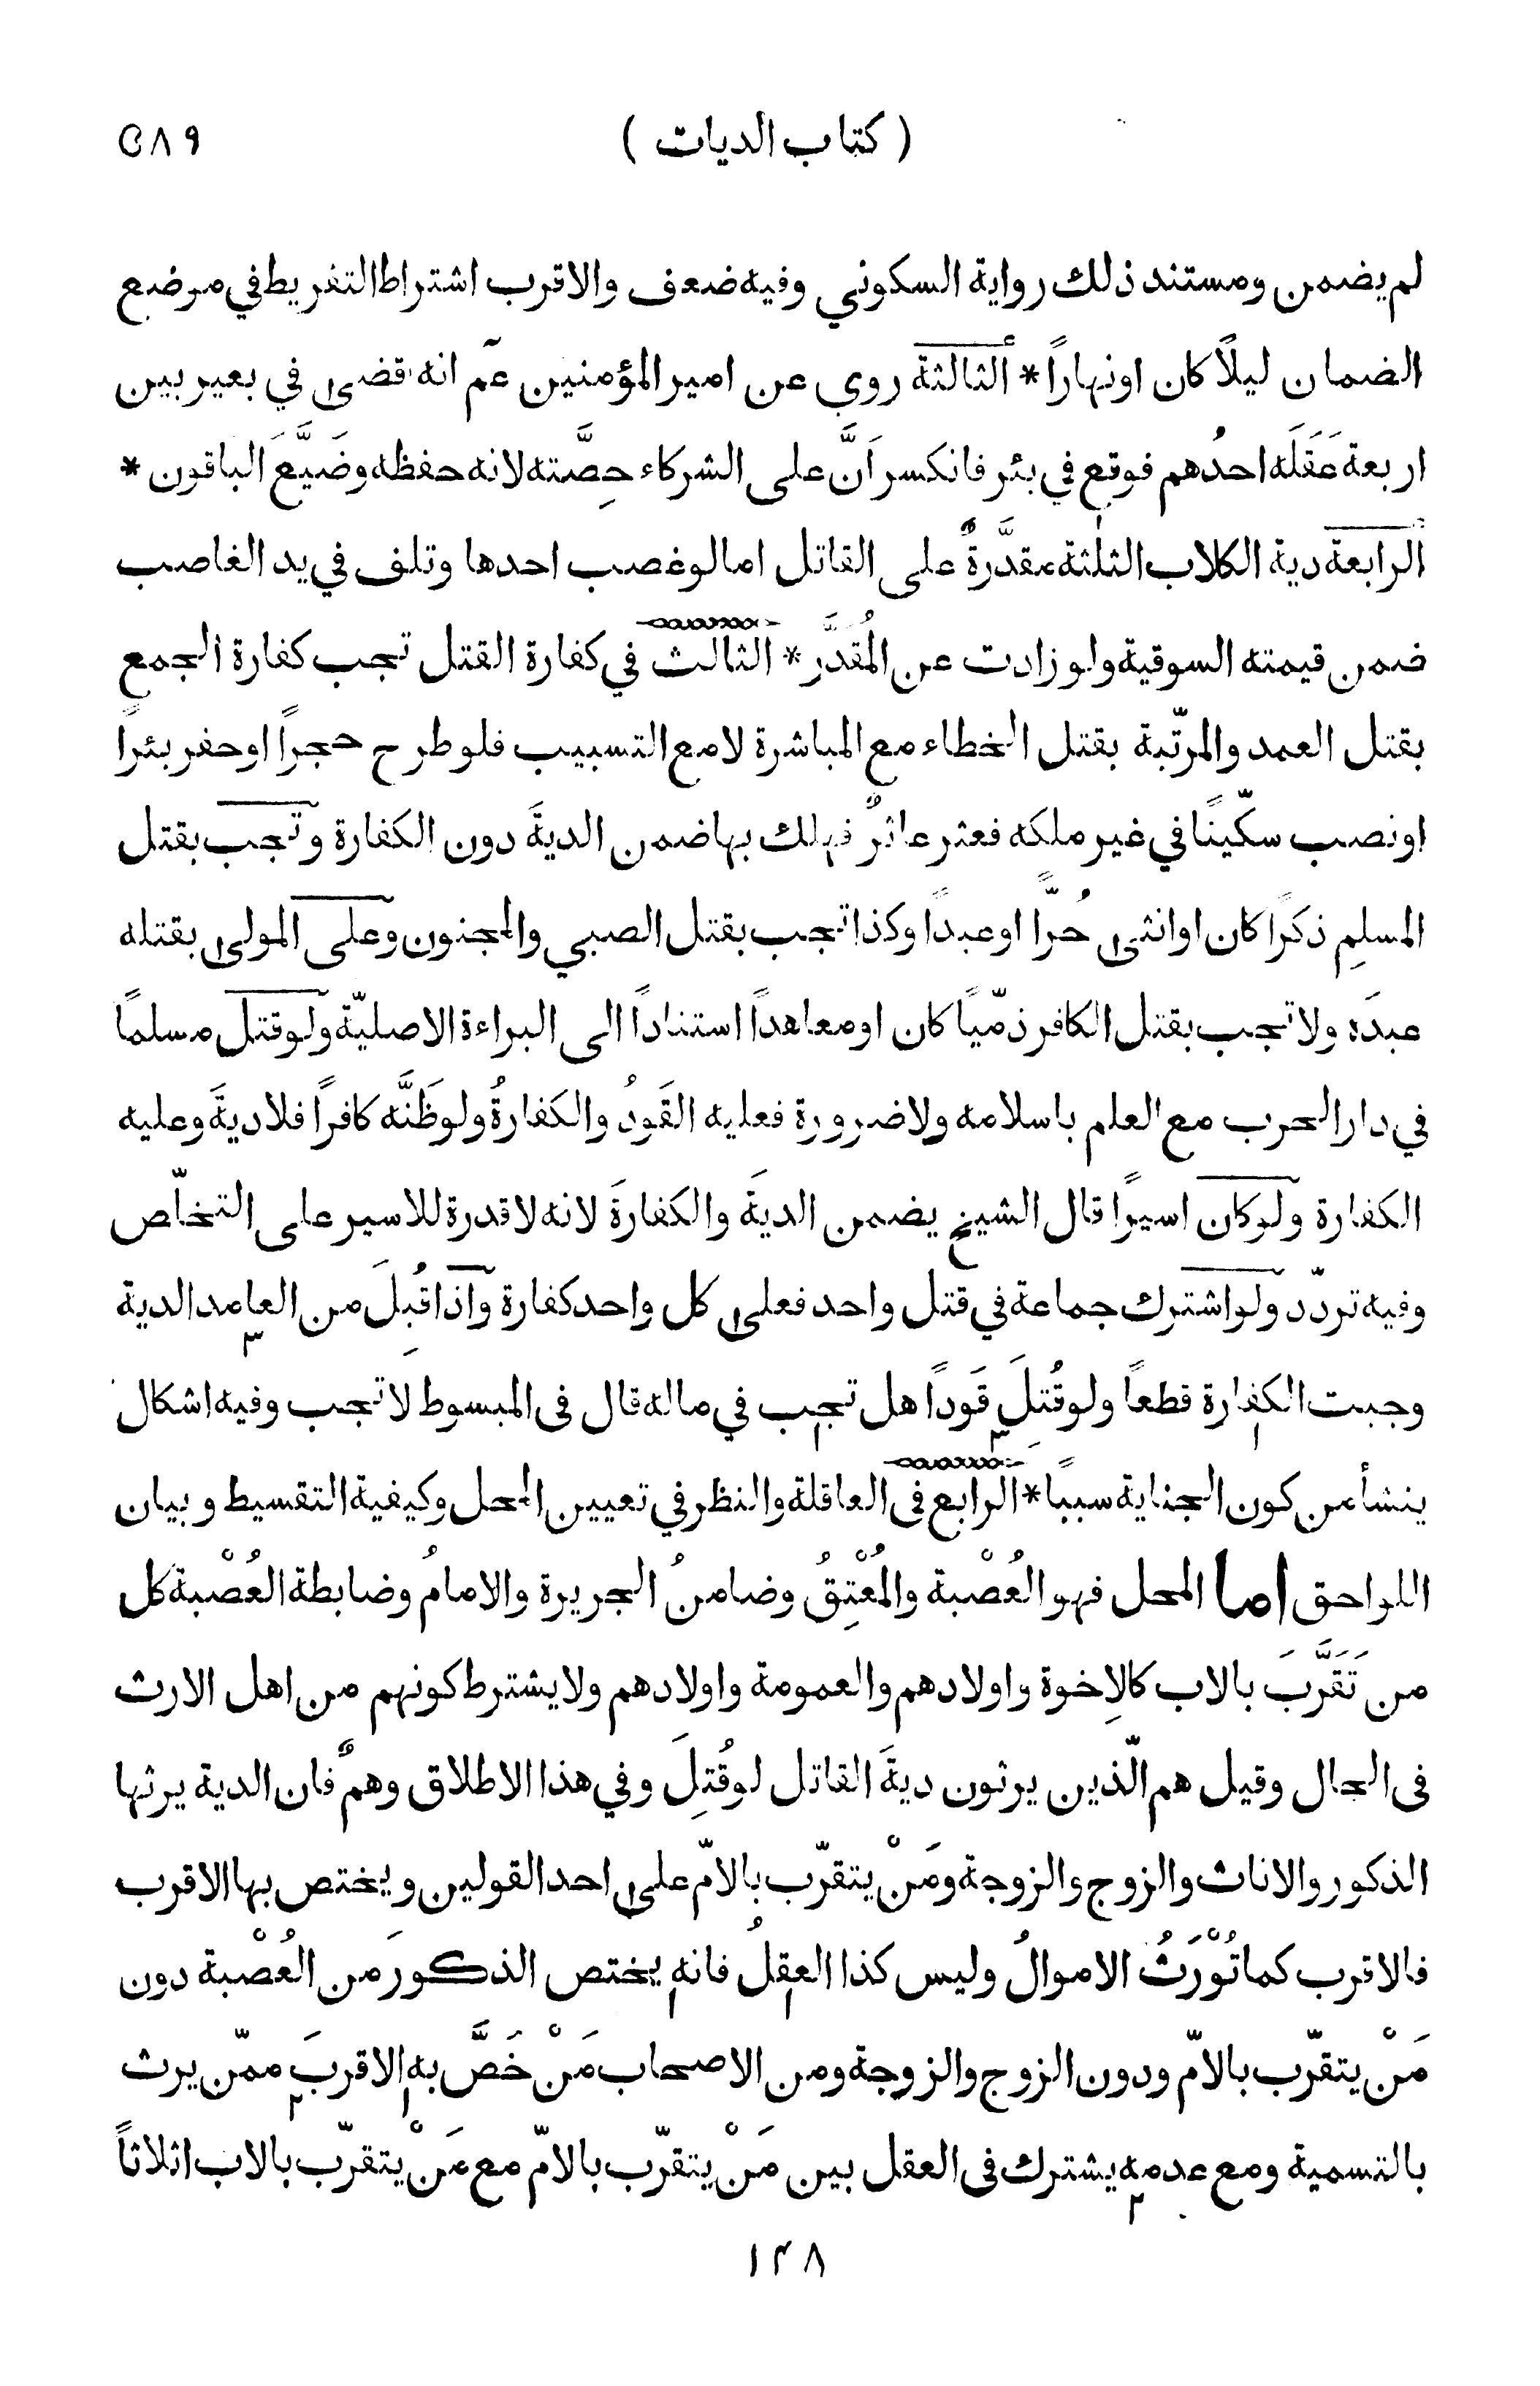 ( كتاب الديات ) ٥٨٩
لم يضمن ومستند ذلك رواية السكوني وفيه ضعف والاقرب اشتراط التفريط في موضع
الضمان ليلًا كان اونهارًا * الثالثة روى عن امير المؤمنين عم انه قضى في بعير بين
اربعة عَقَلَه احدُهم فوقع في بئر فانكسر اَنَّ على الشركاء حِصَّته لانه حفظه وضَيَّعَ الباقون *
الرابعة دية الكلاب الثلثة مقدَّرةٌ على القاتل اما لوغصب احدها وتلف في يد الغاصب
ضمن قيمته السوقية ولو زادت عن المُقدَّر * الثالث في كفارة القتل تجب كفارة الجمع
بقتل العمد والمرتّبة بقتل الخطاء مع المباشرة لا مع التسبيب فلو طرح حجرًا اوحفر بئرًا
اونصب سكّينًا في غير ملكه فعثر عاثرٌ فهلك بها ضمن الديةَ دون الكفارة وتجب بقتل
المسلِم ذكرًا كان اوانثى حُرًّا اوعبدًا وكذا تجب بقتل الصبي والمجنون وعلى المولى بقتله
عبدَه ولا تجب بقتل الكافر ذمّيًا كان اومعاهدًا استنادًا الى البراءة الاصليّة ولوقتل مسلمًا
في دار الحرب مع العلم باسلامه ولا ضرورة فعليه القَودُ والكفارةُ ولوظَنَّه كافرًا فلا ديةَ وعليه
الكفارة ولوكان اسيرًا قال الشيخ يضمن الديةَ والكفارةَ لانه لا قدرة للاسير على التخلّص
وفيه تردّد ولواشترك جماعة في قتل واحد فعلى كل واحد كفارة واذا قُبِلَ من العامد الدية
وجبت الكفارة قطعًا ولوقُتِلَ قَودًا هل تجب في ماله قال فى المبسوط لا تجب وفيه اشكال
ينشأ من كون الجناية سببًا * الرابع فى العاقلة والنظر في تعيين المحل وكيفية التقسيط وبيان
اللواحق اما المحل فهو العُصْبة والمُعْتِقُ وضامنُ الجريرة والامامُ وضابطة العُصْبة كل
من تَقَرَّبَ بالاب كالاِخوة واولادهم والعمومة واولادهم ولا يشترط كونهم من اهل الارث
فى الحال وقيل هم الّذين يرثون ديةَ القاتل لوقُتِلَ وفي هذا الاطلاق وهمٌ فان الدية يرثها
الذكور والاناث والزوج والزوجة ومَنْ يتقرّب بالامّ على احد القولين ويختص بها الاقرب
فالاقرب كما تُوْرَثُ الاموالُ وليس كذا العقلُ فانه يختص الذكورَ من العُصْبة دون
مَنْ يتقرّب بالامّ ودون الزوج والزوجة ومن الاصحاب مَنْ خَصَّ به الاقربَ ممّن يرث
بالتسمية ومع عدمه يشترك فى العقل بين مَنْ يتقرّب بالامّ مع مَنْ يتقرّب بالاب اثلاثًا
١٤٨